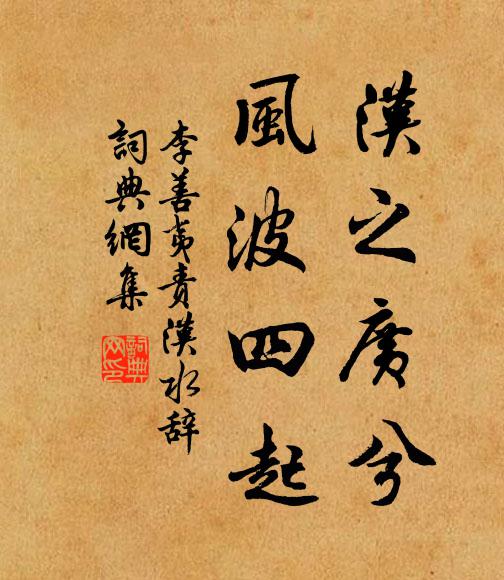 漢之廣兮
風波四起
李善夷責漢水辞
詞典網集
詞典網印